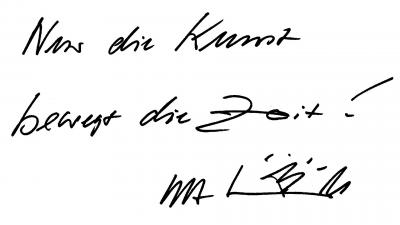 Nur die Kunst
bewegt die Zeit!